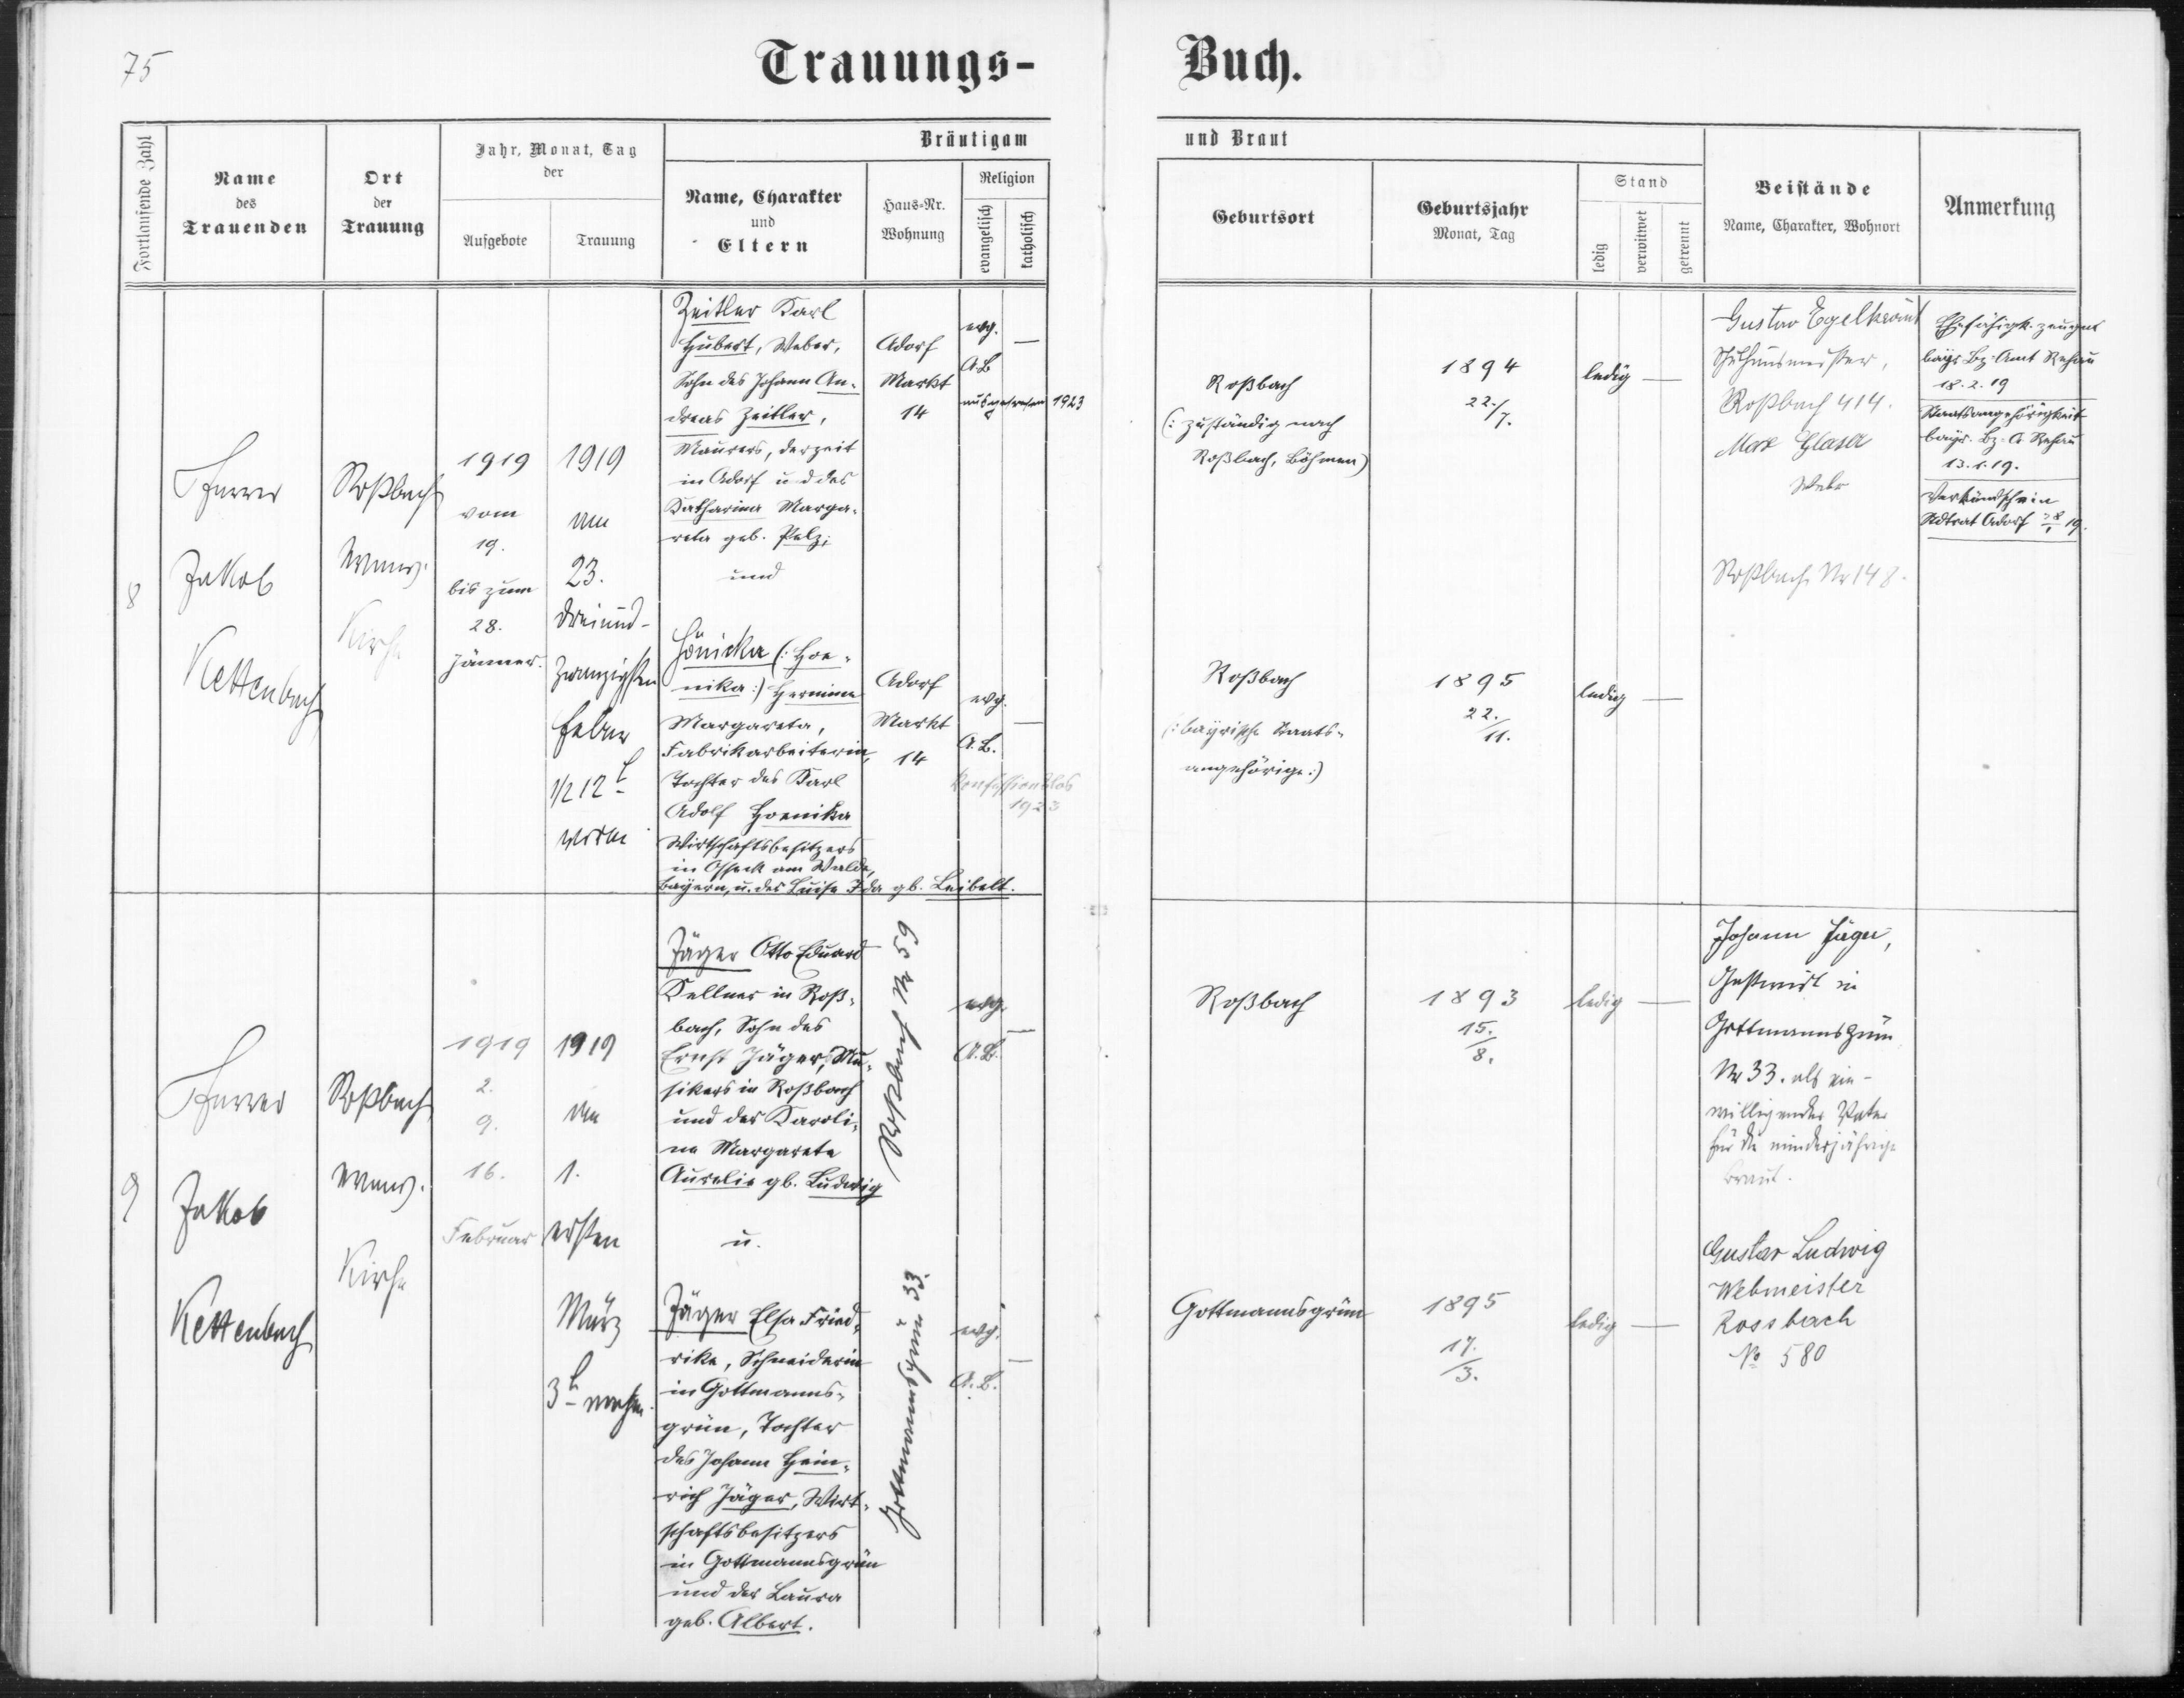 75
Trauungs-
Buch.
Fortlaufende Zahl
Name
des
Trauenden
Ort
der
Trauung
Jahr, Monat, Tag
der
Aufgebote
Trauung
Bräutigam
Name, Charakter
und
Eltern
Haus-Nr.
Wohnung
Religion
evangelisch
katholisch
und Braut
Geburtsort
Geburtsjahr
Monat, Tag
Stand
ledig
verwitwet
getrennt
Beistände
Name, Charakter, Wohnort
Anmerkung
8
Pfarrer
Jakob
Kettenbach
Roßbach
evang.
Kirche
1919
vom
19.
bis zum
28.
Jänner.
1919
am
23.
dreiund-
zwanzigsten
Feber
1/2 12 h
vorm
Zeitler Karl
Hubert, Weber,
Sohn des Johann An-
dreas Zeitler,
Maurers, derzeit
in Adorf und der
Katharina Marga-
reta geb. Pelz;
und
Hönicka (: Hoe-
nika :) Hermine
Margareta,
Fabrikarbeiterin,
Tochter des Karl
Adolf Hoenika
Wirtschaftsbesitzers
in Osseck am Walde,
Bayern, u. der Luise Ida gb. Leibelt.
Adorf
Markt
14
evg.
A.B
ausgetreten 1923
Adorf
Markt
14
evg.
A.B.
Konfessionslos
1923
Roßbach
(: zuständig nach
Roßbach, Böhmen)
1894
22./7.
ledig
Roßbach
(: bayrische Staats-
angehörige :)
1895
22./11.
ledig
Gustav Egelkraut
Schuhmeister,
Roßbach 414.
Max Glaser
Weber
Roßbach Nr 148.
Ehefähigk. zeugnis
bayr. Bz-Amt Rehau
18.2.19
Staatsangehörigkeit
bayr. Bz-A Rehau
13.1.19.
Verkündschein
Stdtrat Adorf 19.
9
Pfarrer
Jakob
Kettenbach
Roßbach
evang.
Kirche
1919
2.
9.
16.
Februar
1919
am
1.
ersten
März
3 h nachm.
Jäger Otto Eduard
Kellner in Roß-
bach, Sohn des
Ernst Jäger, Mu-
sikers in Roßbach
und der Karoli-
na Margareta
Aurelie gb. Ludwig
u.
Jäger Elsa Fried-
rike, Schneiderin
in Gottmanns-
grün, Tochter
des Johann Hein-
rich Jäger, Wirt-
schaftsbesitzers
in Gottmannsgrün
und der Laura
geb. Albert.
Roßbach Nr 59
Gottmannsgrün 33.
evg.
A.B.
evg.
A.B.
Roßbach
1893
15./8.
ledig
Gottmannsgrün
1895
17./3.
ledig
Johann Jäger,
Gastwirt in
Gottmannsgrün
Nr 33. als ein-
willigender Vater
für die minderjährige
Braut.
Gustav Ludwig
Webmeister
Rossbach
No 580